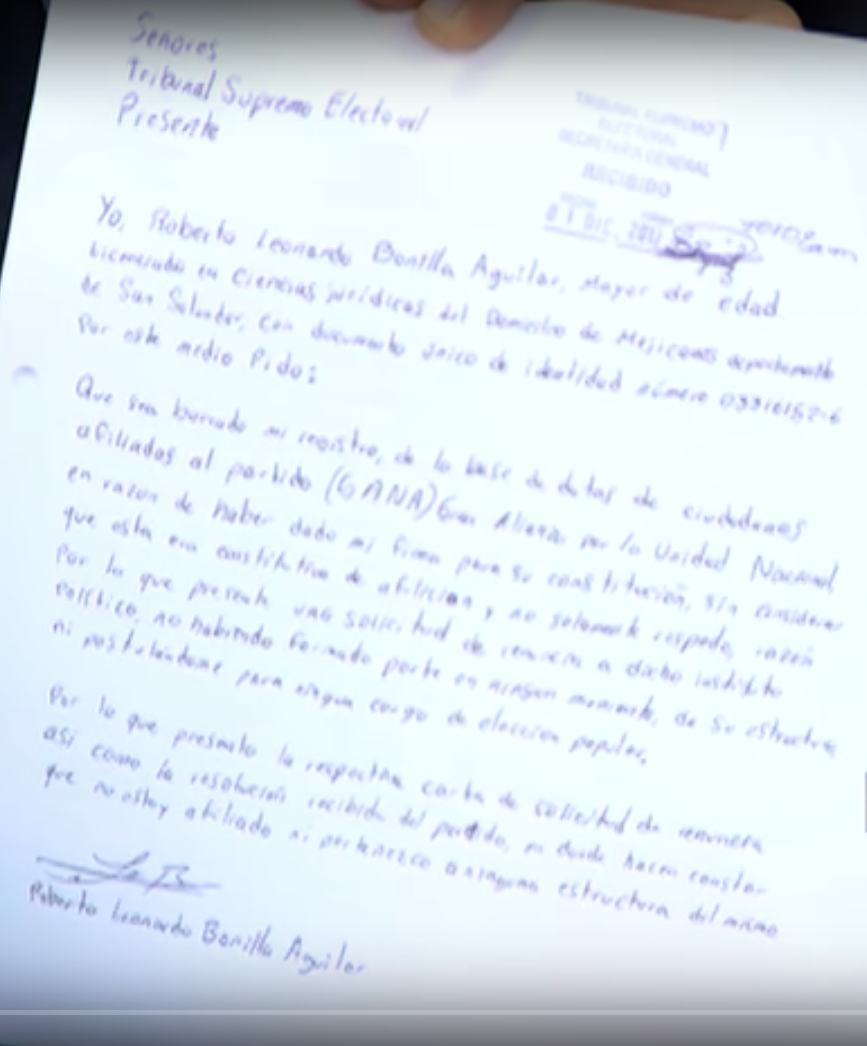 Señores
Tribunal Supremo Electoral
Presente
TRIBUNAL SUPREMO
ELECTORAL
SECRETARIA GENERAL
RECIBIDO
01 DIC. 
Yo, Roberto Leonardo Bonilla Aguilar, Mayor de edad
Licenciado en Ciencias jurídicas del Domicilio de Mejicanos departamento
de San Salvador, con documento único de identidad número
Por este medio Pido:
Que sea borrado mi registro, de la base de datos de ciudadanos
afiliados al partido (GANA) Gran Alianza por la Unidad Nacional,
en razon de haber dado mi firma para su constitución, sin considerar
que esta era constitutiva de afilición y no solamente respaldo, razon
Por lo que presente una solicitud de renuncia a dicho instituto
Político, no habiendo formado parte en ningun momento, de su estructura
ni postulandome para ningun cargo de elección popular.
Por lo que presento la respectiva carta de solicitud de renuncia
así como la resolución recibida del partido, en donde hacen constar
que no estoy afiliado ni pertenezco a ninguna estructura del mismo
Roberto Leonardo Bonilla Aguilar